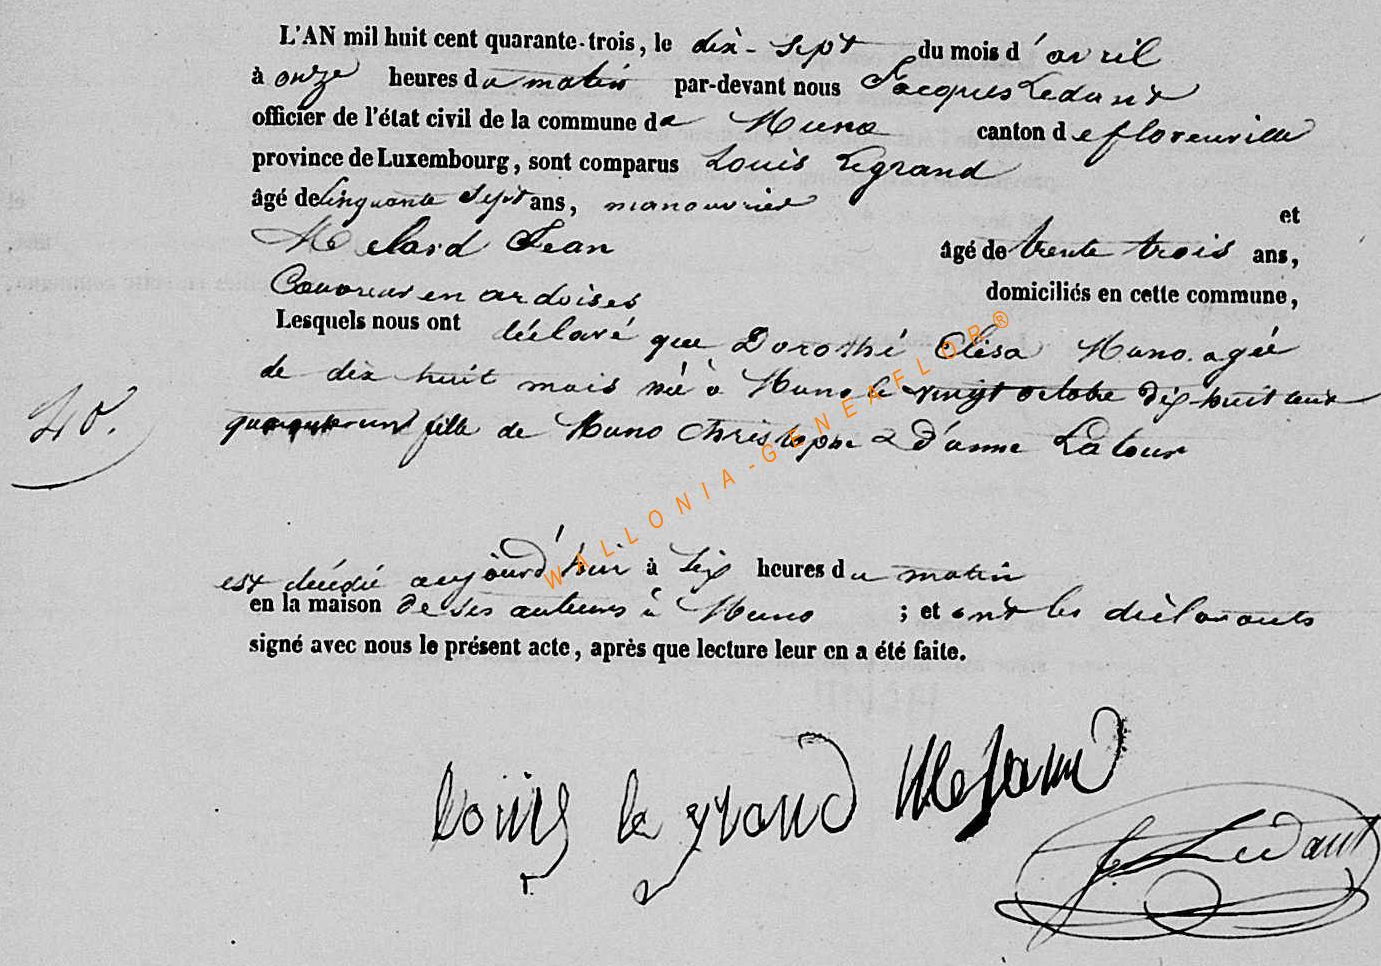 L'AN mil huit cent quarante-trois, le dix-sept du mois d'avril
à onze heures du matin par-devant nous Jacques Ledant
officier de l'état civil de la commune de Muno canton de florenville
province de Luxembourg, sont comparus Louis Legrand
âgé de Cinquante Sept ans, manouvrier et
Jean âgé de trente trois ans,
Couvreur en ardoises domiciliés en cette commune,
Lesquels nous ont déclaré que Dorothé Elisa Muno agée
de dix huit mois née à Muno le vingt octobre dix huit cent
40.
quarante un fille de Muno Christophe & d'anne Latour
est décédé aujourd'hui à Six heures du matin
en la maison de ses auteurs à Muno ; et ont les déclarants
signé avec nous le présent acte, après que lecture leur en a été faite.
Louis le grand
J Ledant
WALLONIA-GENEAFLOR®